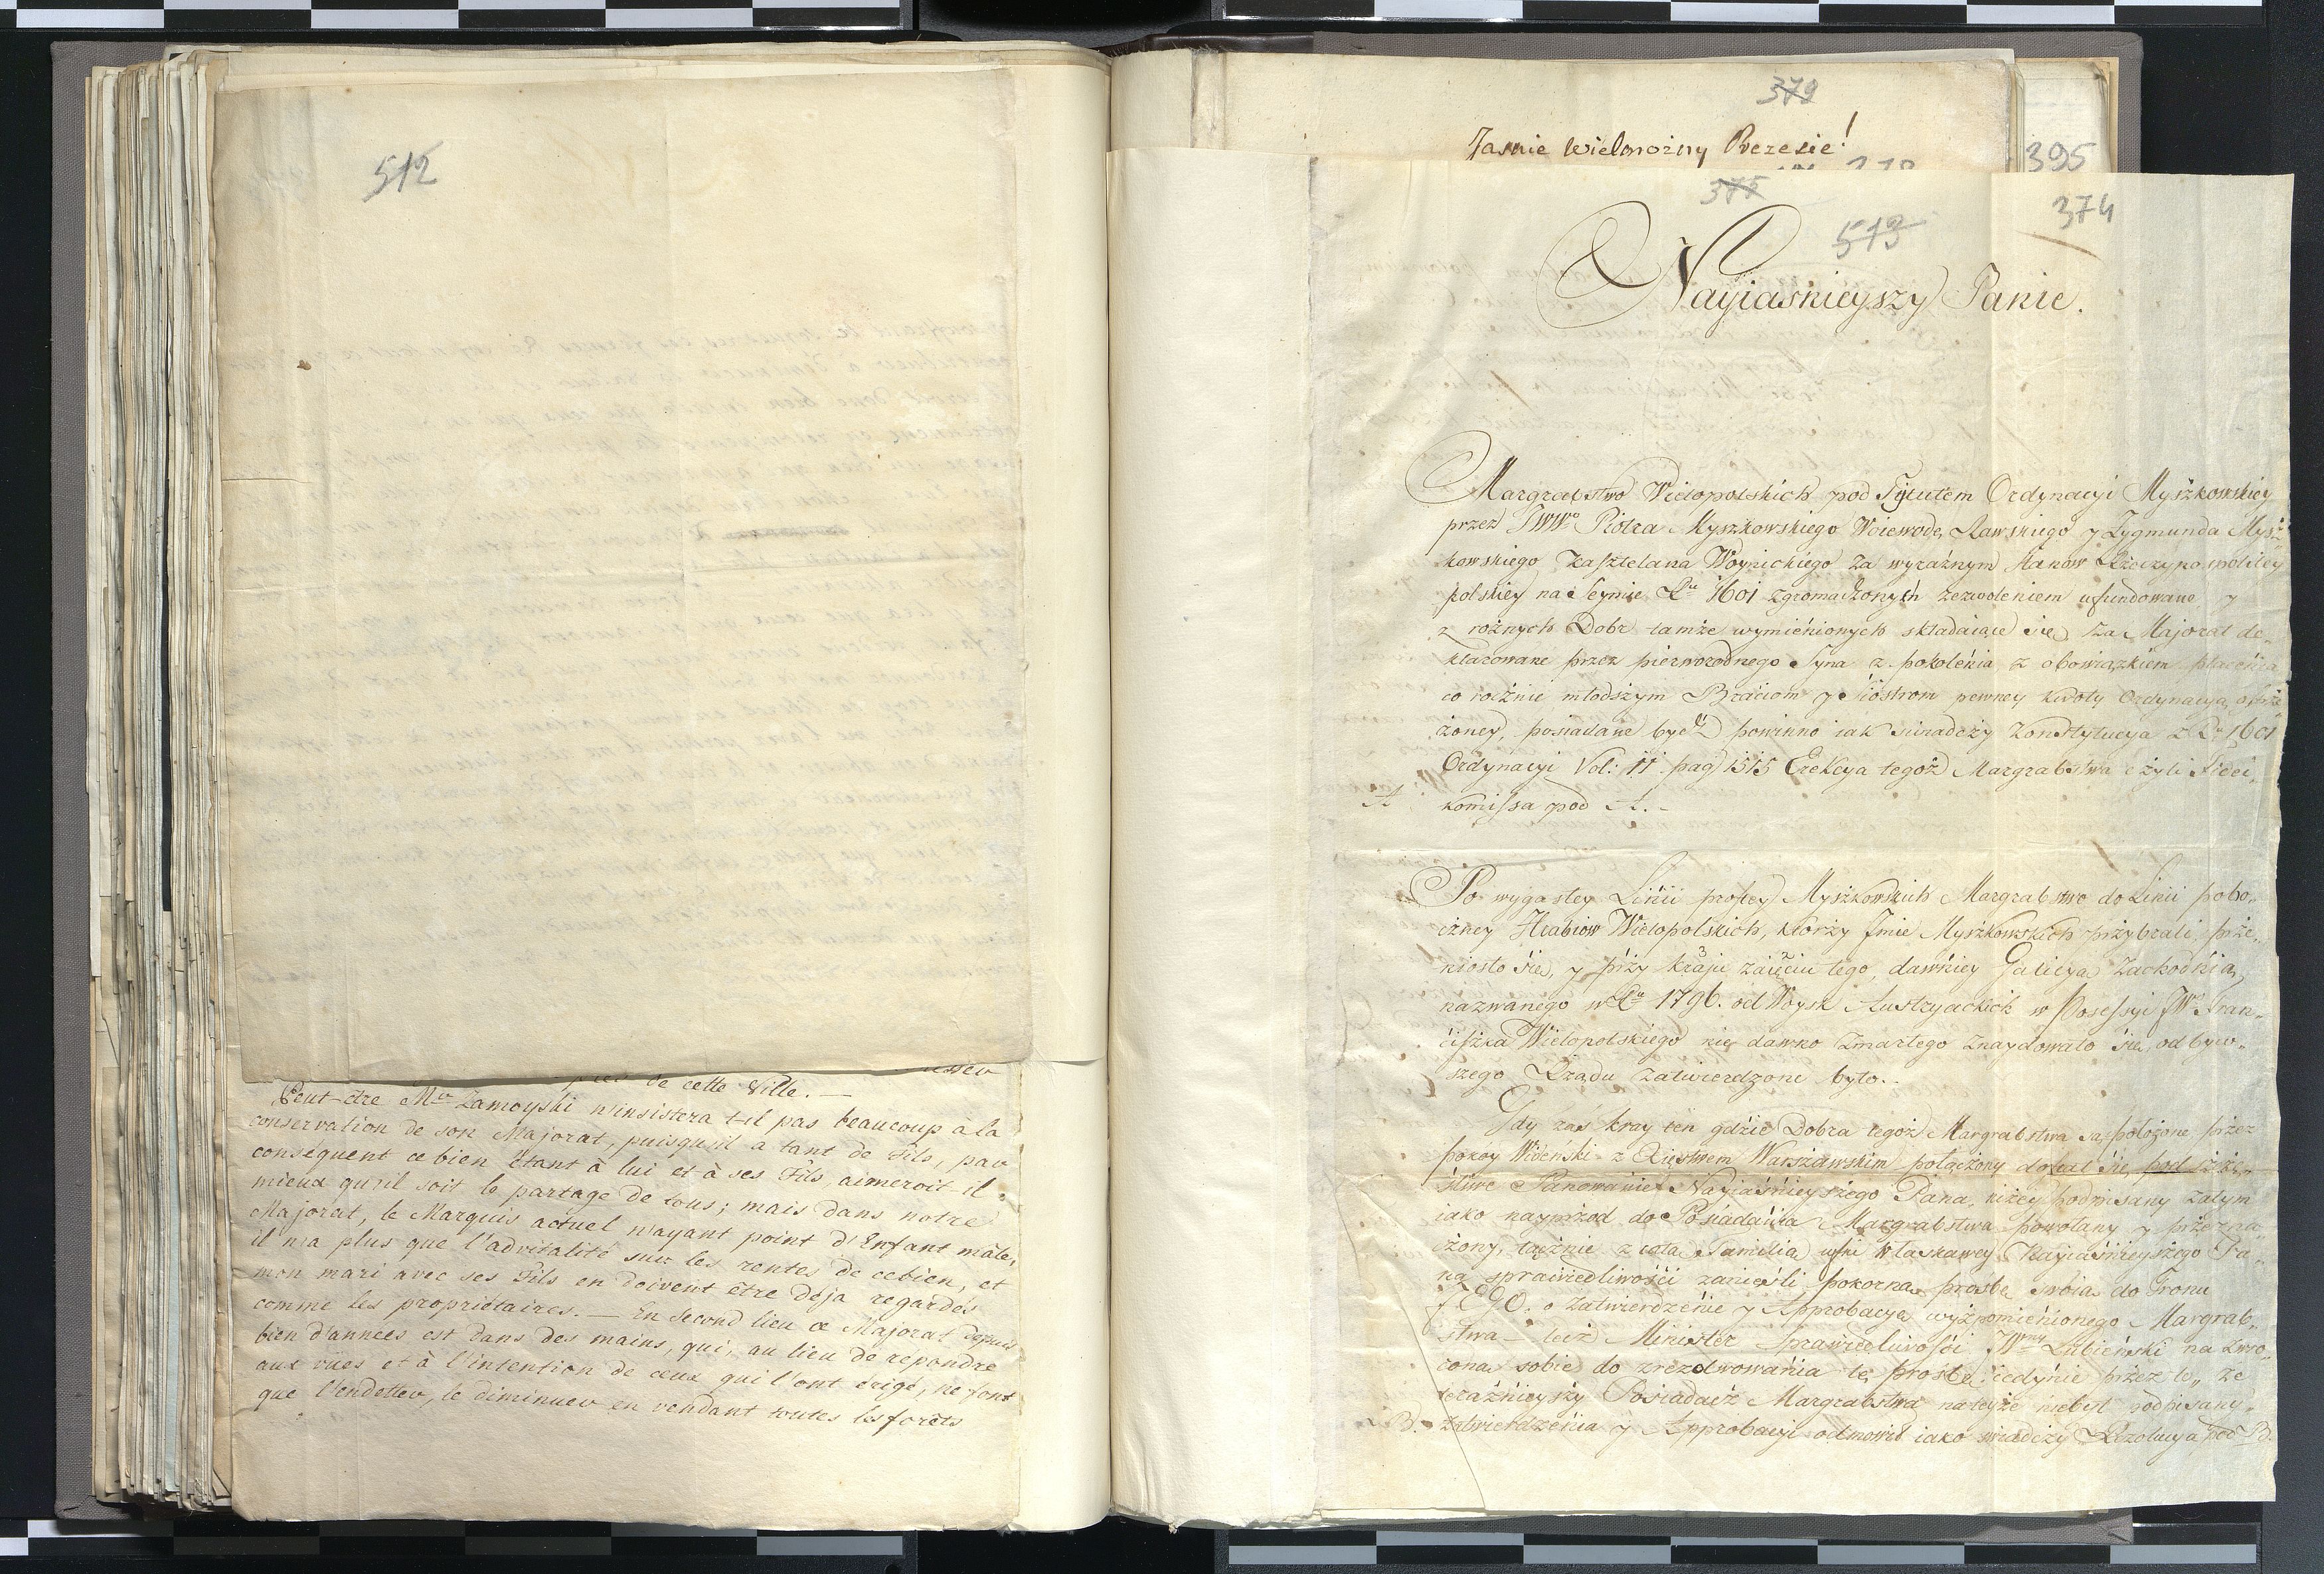 512
pres de cette Ville. —
Peut-etre Mr Zamoyski n'insistera t-il pas beaucoup à la
conservation de son Majorat, puisqu'il a tant de Fils, par
conséquent ce bien étant à lui et à ses Fils, aimeroit-il
mieux qu'il soit le partage de tous; mais dans notre
Majorat, le Marquis actuel n'ayant point d'Enfant mâle,
il n'a plus que l'advitalité sur les rentes de ce bien, et
mon mari avec ses Fils en doivent être déja regardés
comme les propriétaires. — En second lieu ce Majorat depuis
bien d'années est dans des mains, qui, au lieu de répondre
aux vües et à l'intention de ceux qui l'ont érigé, ne font
que l'endetter, le diminuer en vendant toutes les forêts
379
Jasnie Wielmożny Prezesie!
395
375
374
513
Nayiasnieyszy Panie.
Margrabstwo Wielopolskich pod Tytułem Ordynacyi Myszkowskiey
przez JWWo Piotra Myszkowskiego Woiewodę Rawskiego y Zygmunda Mysz-
kowskiego Kasztelana Woynickiego za wyraźnym stanow Rzeczypospolitey
polskiey na Seymie Ru 1601 zgromadzonych zezwoleniem ufundowane y
z rożnych Dobr tamże wymienionych składaiące się, za Majorat de-
klarowane przez pierworodnego Syna z pokolenia z obowiązkiem płacenia
co rocznie młodszym Braciom y Siostrom pewney kwoty Ordynacyą
żoney, posiadane bydź powinno iak swiadczy Konstytucya z Ru 1601
Ordynacyi Vol: II pag 1515 Erekcya tegoż Margrabstwa czyli Fidei-
A komissa pod A. -
Po wygasłey Linii prostey Myszkowskich Margrabstwo do Linii pobo-
czney Hrabiow Wielopolskich, którzy Imie Myszkowskich przybrali, prze-
niosło się, y przy kraju zaięciu tego, dawniey Galicyą Zachodnią
nazwanego w Ru 1796. od Woysk Austryackich w Posessyi JWo Fran-
ciszka Wielopolskiego nie dawno zmarłego znaydowało się, od byw-
szego Rządu zatwierdzone było. -
Gdy zaś kray ten gdzie Dobra tegoż Margrabstwa są położone przez
pokoy Wideński z Xięstwem Warszawskim połączony dostał się pod szczę-
śliwe Panowanie Nayiaśnieyszego Pana, niżey podpisany zatym
iako naypzod do Posiadania Margrabstwa powołany y przezna-
czony, łącznie z całą Familią ufni w łaskawey Nayiaśnieyszego Pa-
na sprawiedliwości zanieśli pokorną prosbę swoią do Tronu
JEGO. o Zatwierdzenie y Approbacyą wyżpomienionego Margrab-
stwa - lecz Minister Sprawiedliwości JWny Łubieński na zwro-
coną sobie do zrezolwowania tę prosbę, iedynie przez to, że
teraźnieyszy Posiadacz Margrabstwa na teyże niebył podpisany-
B. zatwierdzenia y Approbacyi odmowił iako swiadczy Rezolucya pod B.